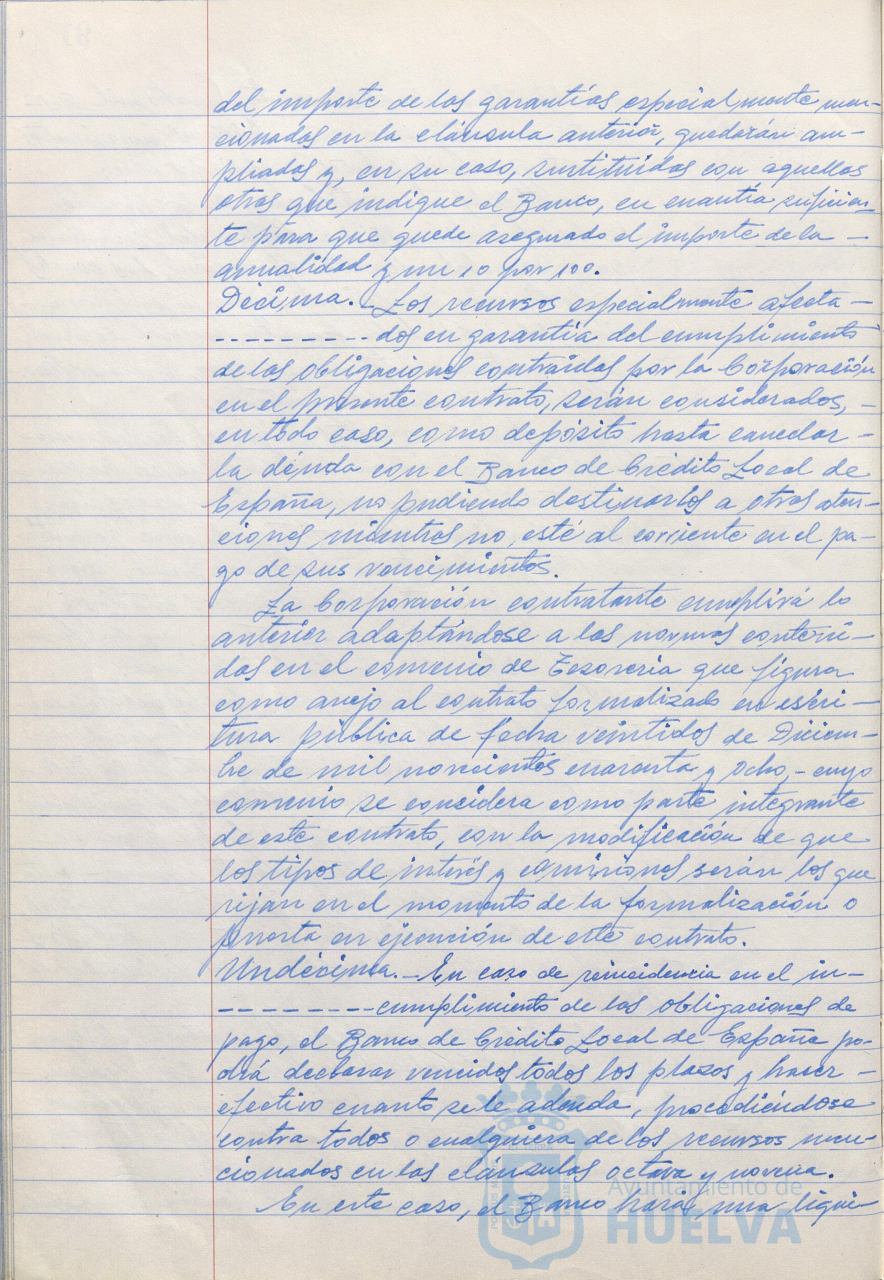 del importe de las garantías especialmente men-
cionadas en la cláusula anterior, quedarán am-
pliadas y, en su caso, sustituidas con aquellas
otras que indique el Banco, en cuantía suficien-
te para que quede asegurado el importe de la —
anualidad y un 10 por 100.
Décima. - Los recursos especialmente afecta —
---------- dos en garantía del cumplimiento
de las obligaciones contraídas por la Corporación
en el presente contrato, serán considerados, —
en todo caso, como depósito hasta cancelar —
la deuda con el Banco de Crédito Local de
España, no pudiendo destinarlos a otras aten-
ciones mientras no esté al corriente en el pa-
go de sus vencimientos.
La Corporación contratante cumplirá lo
anterior adaptándose a las normas conteni-
das en el convenio de Tesorería que figura
como anejo al contrato formalizado en escri —
tura pública de fecha veintidos de Diciem-
bre de mil novecientos cuarenta y ocho, - cuyo
convenio se considera como parte integrante
de este contrato, con la modificación de que
los tipos de interés y comisiones serán los que
rijan en el momento de la formalización o
puesta en ejecución de este contrato.
Undécima. - En caso de reincidencia en el in —
---------- cumplimiento de las obligaciones de
pago, el Banco de Crédito Local de España po-
drá declarar vencidos todos los plazos y hacer —
efectivo cuanto se le adeuda, procediéndose
contra todos o cualquiera de los recursos men-
cionados en las cláusulas octava y novena.
En este caso, el Banco hará una liqui-
Ayuntamiento de
HUELVA